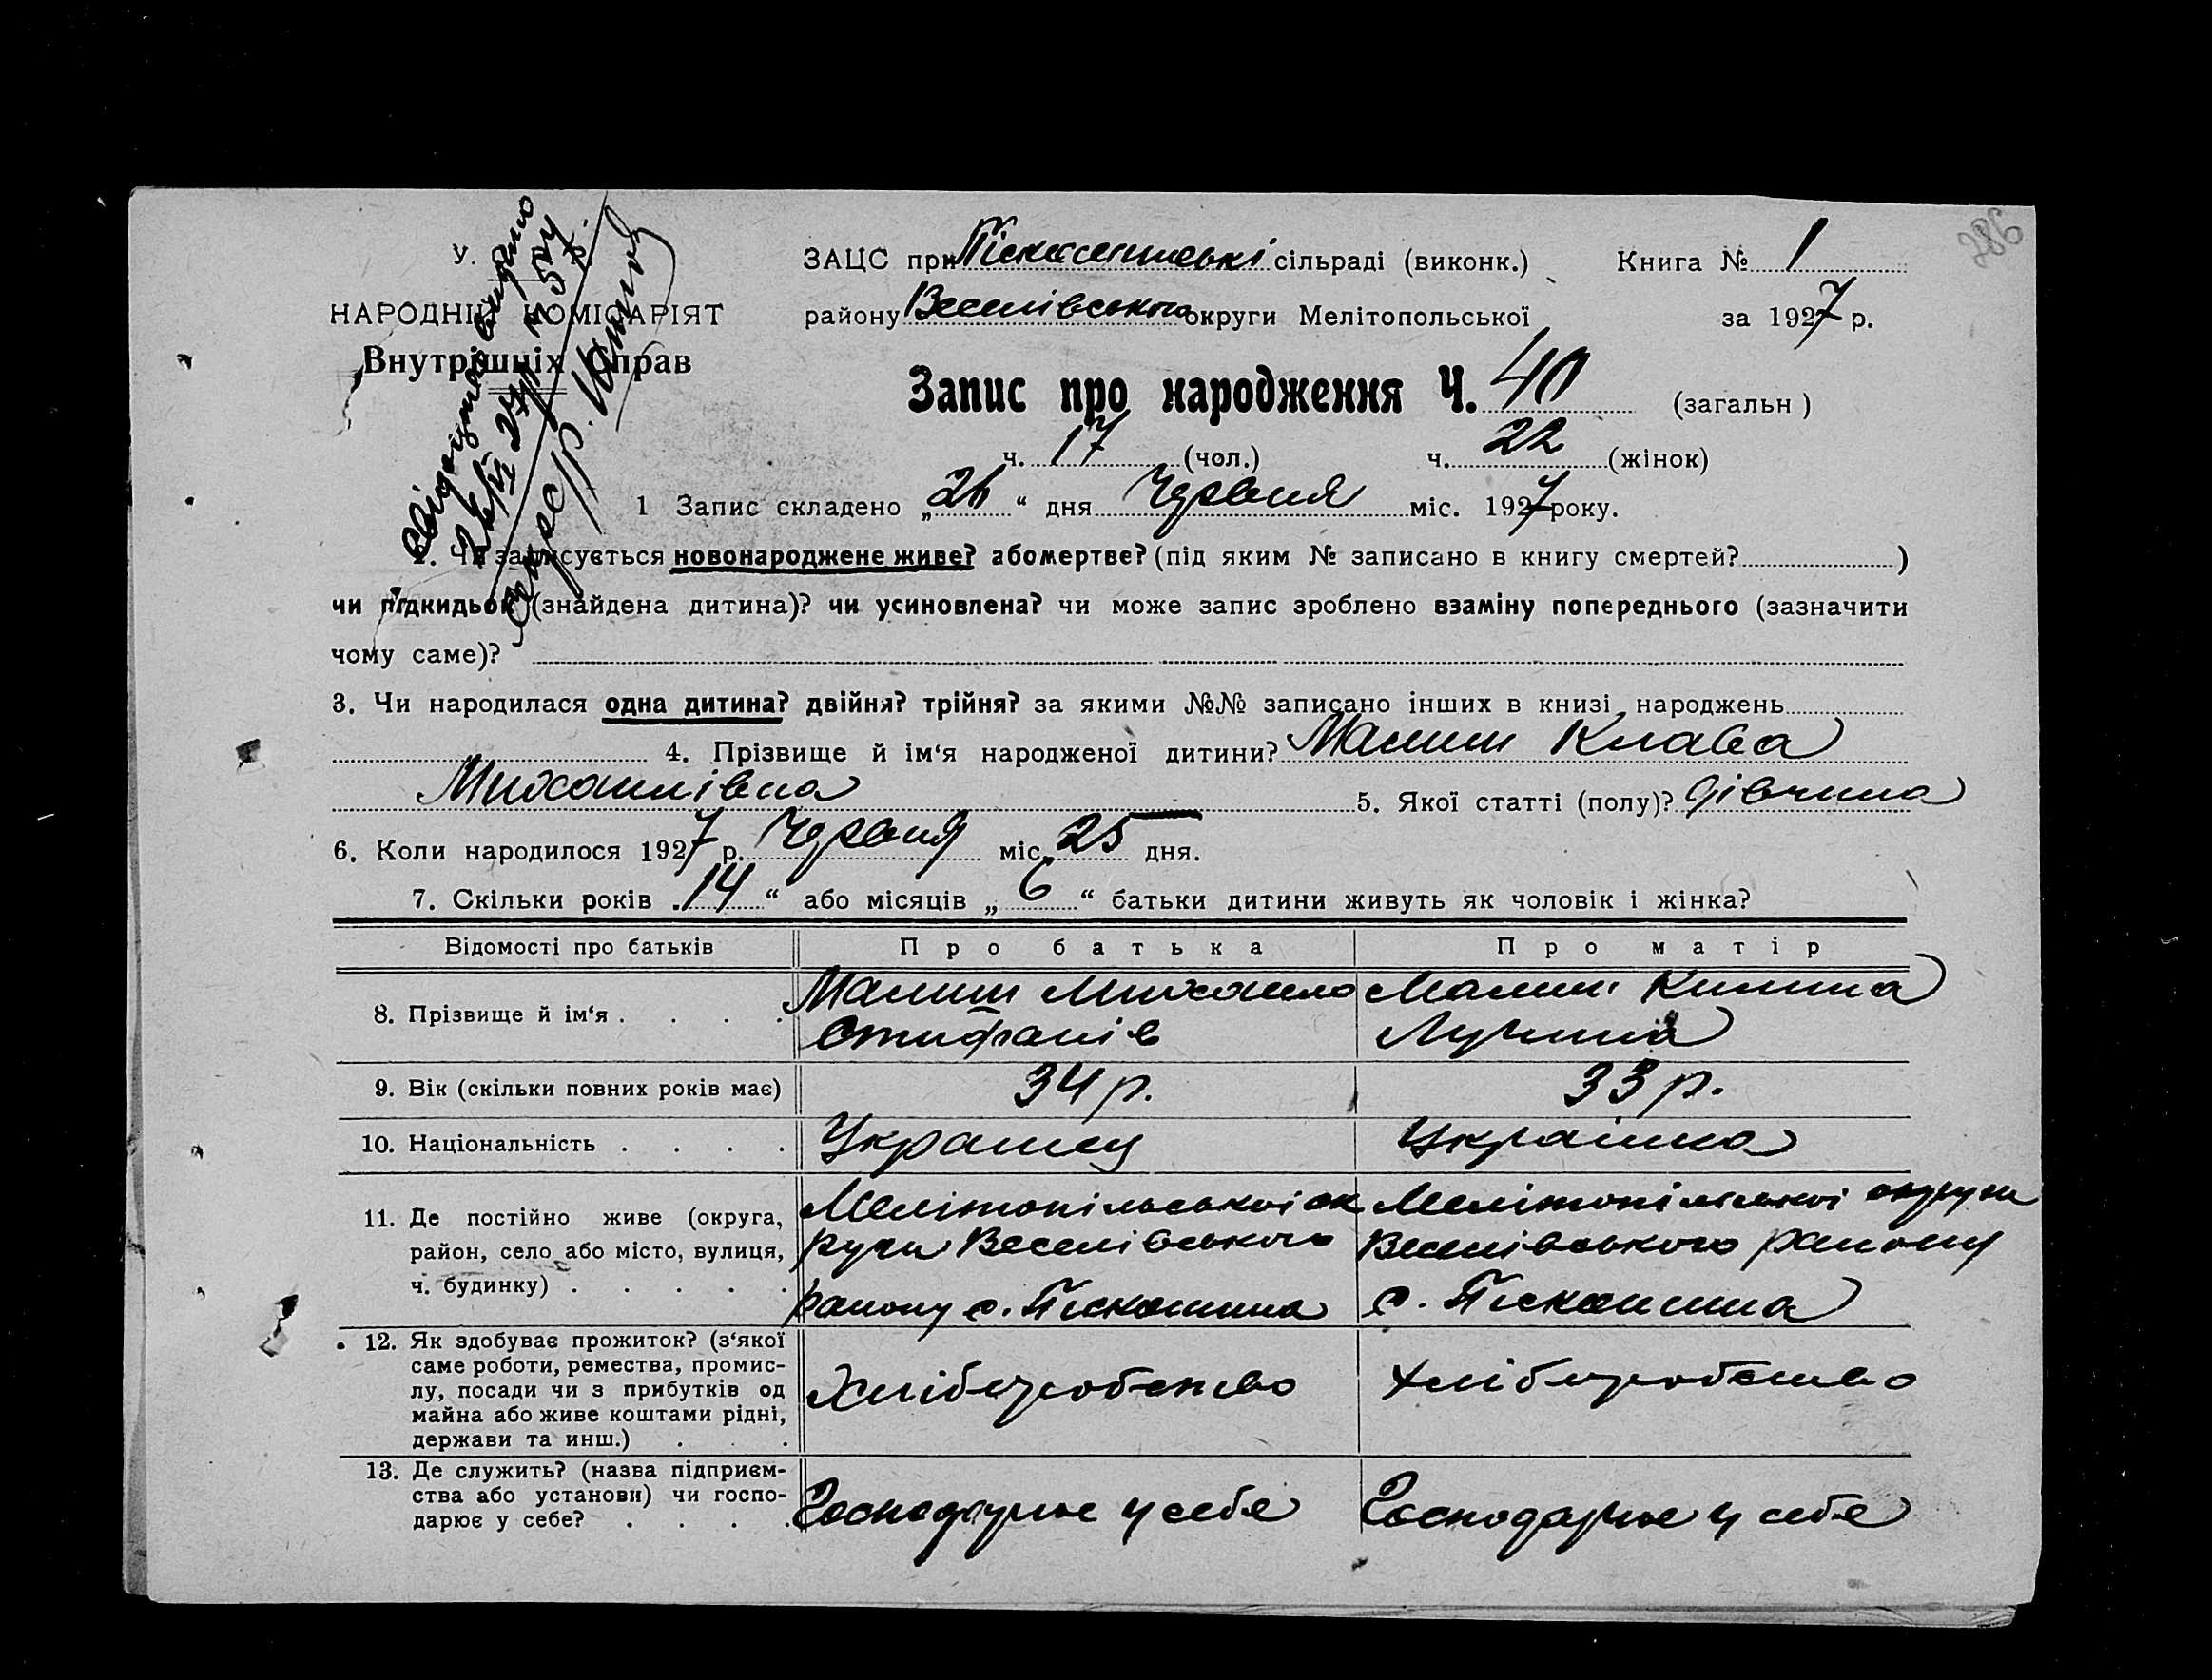 286
У.
НАРОДНІЙ КОМІСАРІЯТ
Внутрішніх Справ
ЗАЦС при Піскошинські сільраді (виконк.) Книга № 1
району Веселівського округи Мелітопольської за 1927 р.
Запис про народження Ч. 40 (загальн)
ч. 17 (чол.) ч. 22 (жінок)
1 Запис складено „26“ дня Червня міс. 1927 року.
2. Чи записується новонароджене живе? абомертве? (під яким № записано в книгу смертей? )
чи підкидьок (знайдена дитина)? чи усиновлена? чи може запис зроблено взаміну попереднього (зазначити
чому саме)?
3. Чи народилася одна дитина? двійня? трійня? за якими №№ записано інших в книзі народжень
4. Прізвище й ім‘я народженої дитини? Малиш Клава
Михаилівна 5. Якої статті (полу)? дівчина
6. Коли народилося 1927 р. Червня міс. 25 дня.
7. Скільки років „14“ або місяців „6“ батьки дитини живуть як чоловік і жінка?
Відомості про батьків Про батька Про матір
8. Прізвище й ім‘я . . . . Малиш Михаило Малиш Килина
Стифанів Лукина
9. Вік (скільки повних років має) 34 р. 33 р.
10. Національність . . . . Украінец Украінка
11. Де постійно живе (округа, Мелітопільськоі ок Мелітопільськоі округи
район, село або місто, вулиця, руги Веселівського Веселівського раиону
ч. будинку) . . . . . раиону с. Пискошина с. Пискошина
12. Як здобуває прожиток? (з‘якої
саме роботи, ремества, промис-
лу, посади чи з прибутків од Хліборобство Хліборобство
майна або живе коштами рідні,
держави та инш.) . . .
13. Де служить? (назва підприєм-
ства або установи) чи госпо- Господарює у себе Господарює у себе
дарює у себе? . . . .